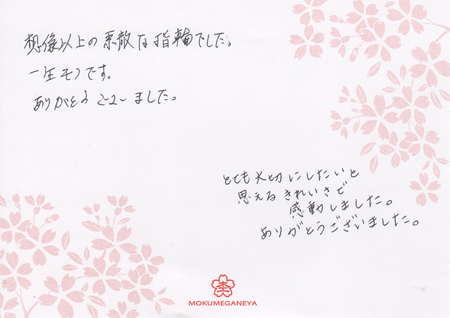 想像以上の素敵な指輪でした。
一生モノです。
ありがとうございました。
とても大切にしたいと
思えるきれいさで
感動しました。
ありがとうございました。
MOKUMEGANEYA